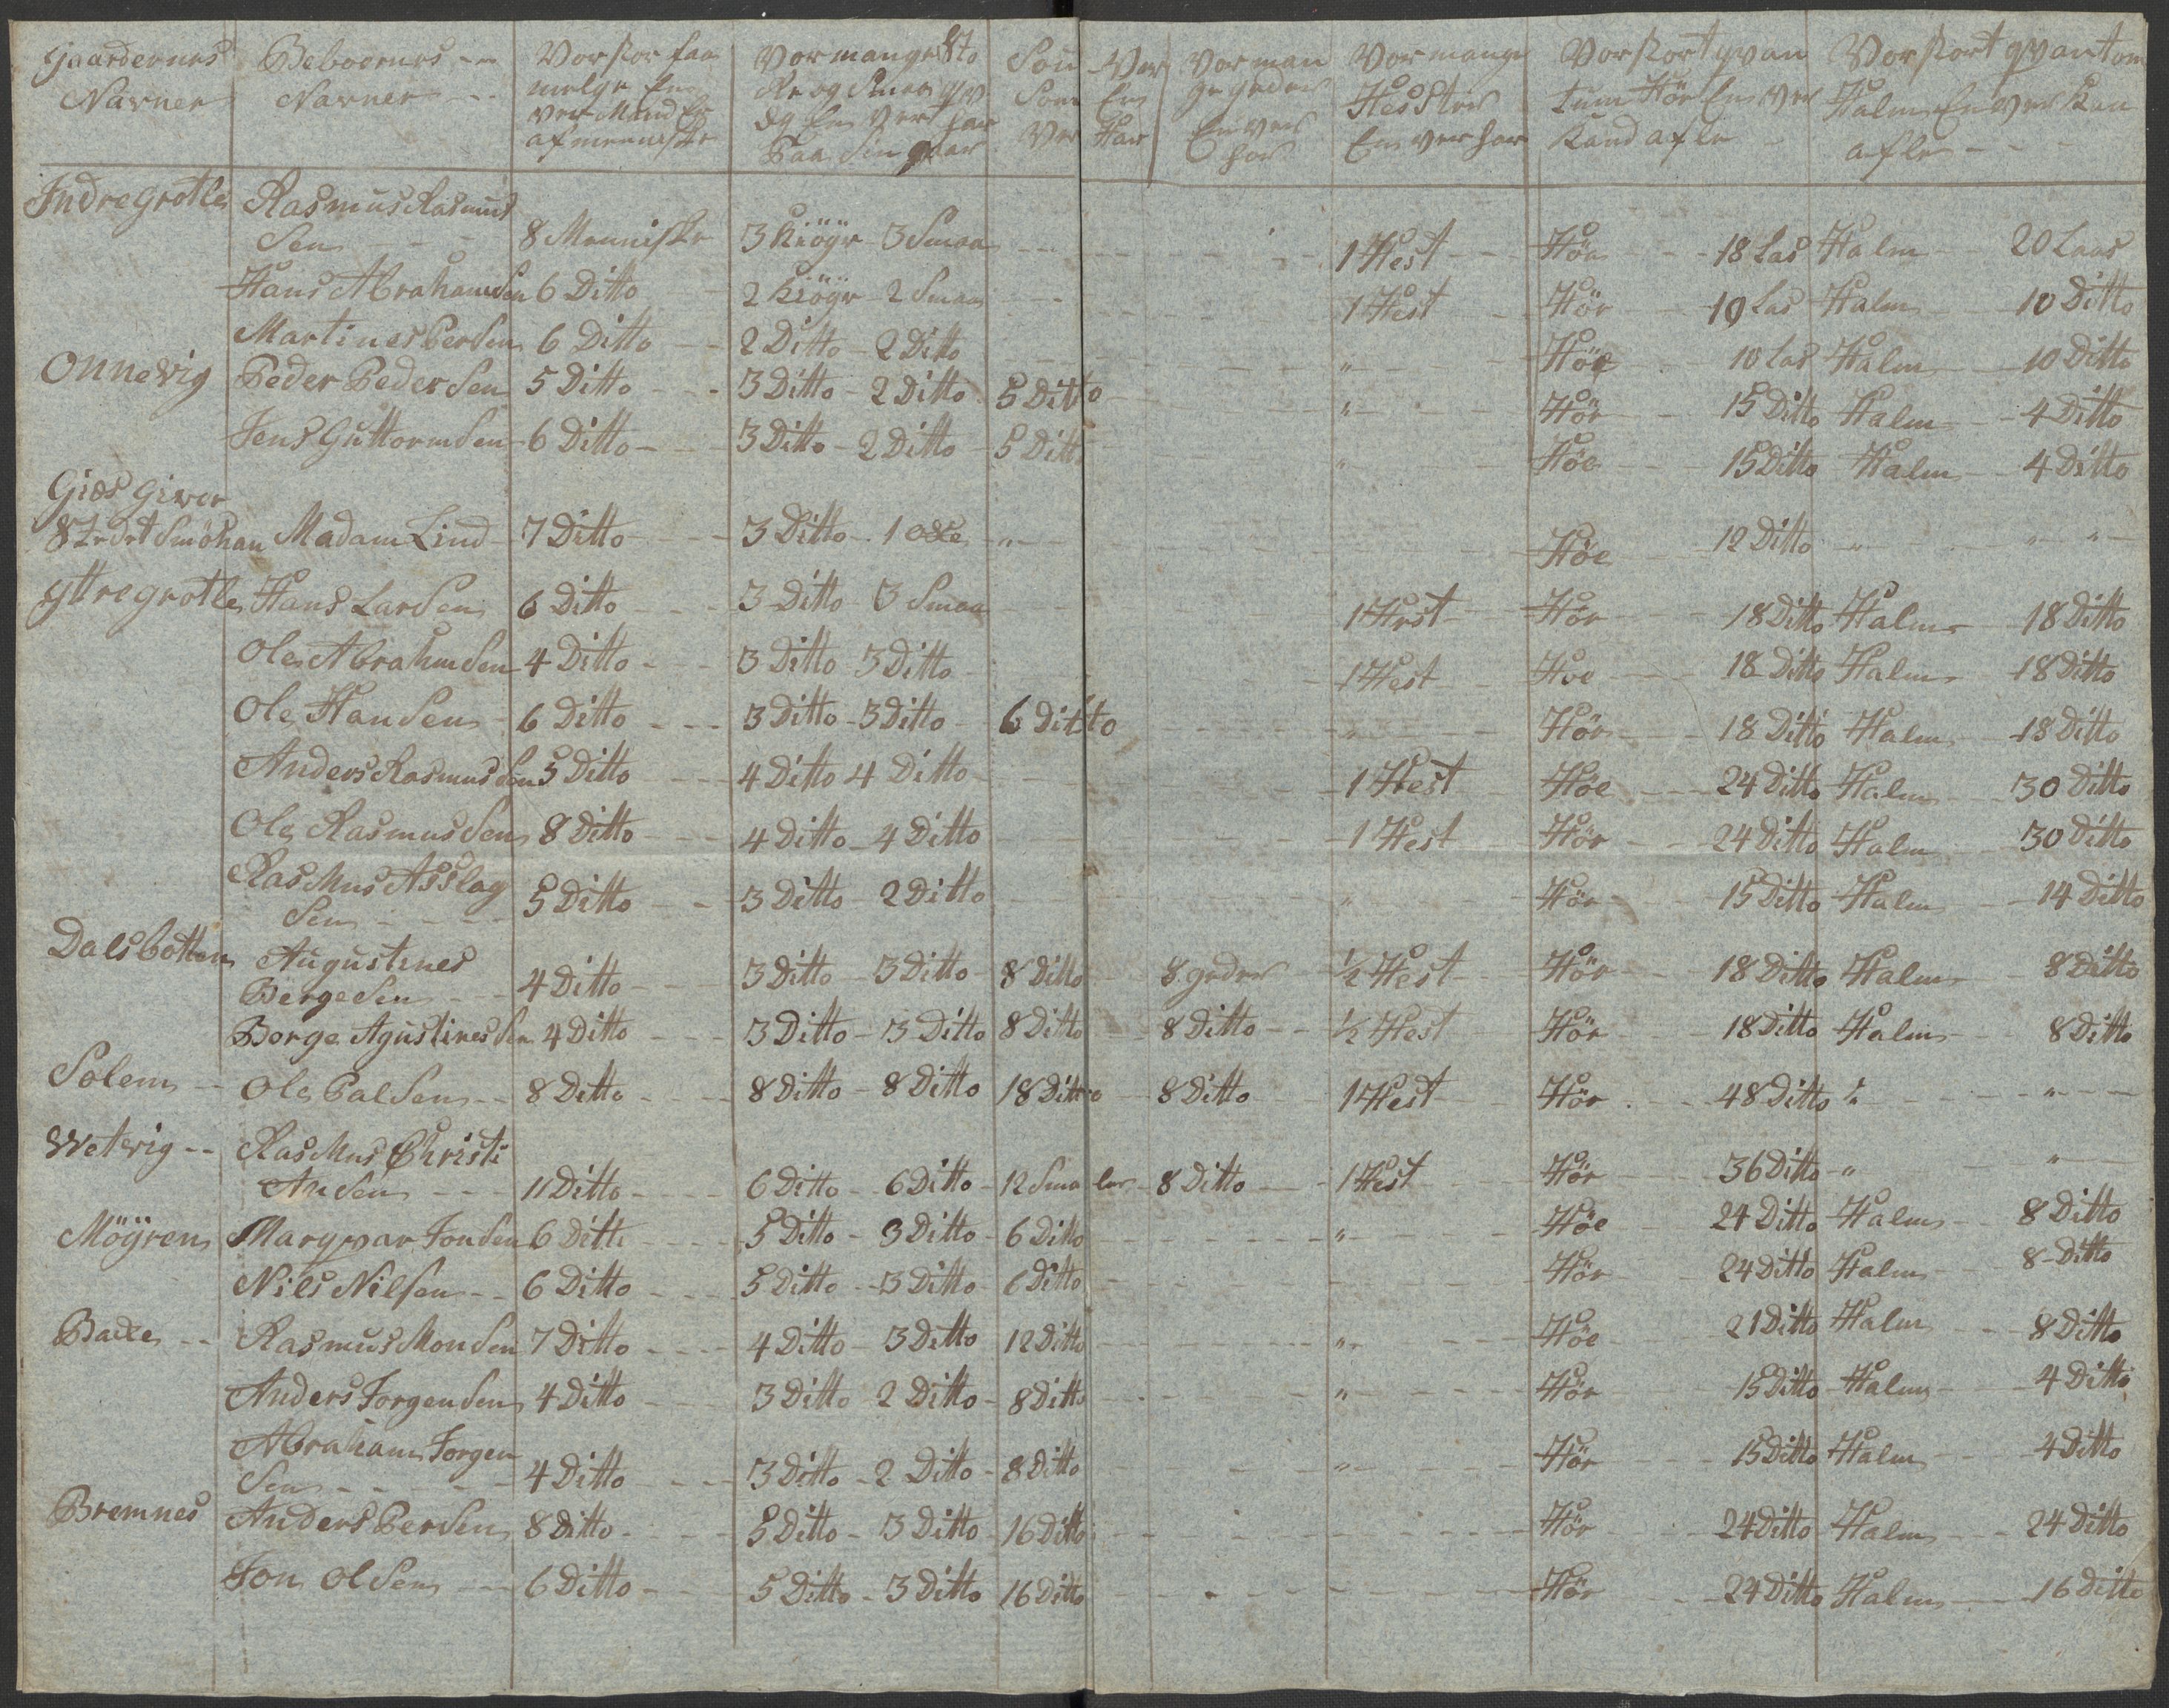 Gaardernes Beboernes Vor stor faa Vor mange Sto Sou Ver Vor man Vor mange Vor stort qvan Vor stort qvantom
Navner Navner melge En re og Smaa qv Som En ge geder Hester tum Höe En ver Halm En ver kan
ver Mand Er æg En ver har Ver Har En ver En ver har kand afle afle
af menniske Paa Sin gaar har
Indre Grotle Rasmus Rasmus
Sen 8 Menniske 3 Kiöyr 3 Smaa 1 Hest Hör 18 Las Halm 20 Laas
Hans Abrahamsen 6 Ditto 2 Kiöyr 2 Smaa 1 Hest Hör 10 Las Halm 10 Ditto
Martines Persen 6 Ditto 2 Ditto 2 Ditto " Höe 10 Las Halm 10 Ditto
Onnevig Peder Peder Sen 5 Ditto 3 Ditto 2 Ditto 5 Ditto " Hör 15 Ditto Halm 4 Ditto
Jens Guttorm Sen 6 Ditto 3 Ditto 2 Ditto 5 Ditt " Höe 15 Ditto Halm 4 Ditto
Gies Giver
Stedet Smöhan Madam Lind 7 Ditto 3 Ditto 1 oxe " Höe 12 Ditto " " "
Yttre grotle Hans Lar Sen 6 Ditto 3 Ditto 3 Smaa 1 Hest Hör 18 Ditto Halm 18 Ditto
Ole Abrahm Sen 4 Ditto 3 Ditto 3 Ditto 1 Hest Hoe 18 Ditto Halm 18 Ditto
Ole Han Sen 6 Ditto 3 Ditto 3 Ditto 6 Ditto " Hör 18 Ditto Halm 18 Ditto
Anders Rasmus Sen 5 Ditto 4 Ditto 4 Ditto 1 Hest Höe 24 Ditto Halm 30 Ditto
Ole Rasmus Sen 8 Ditto 4 Ditto 4 Ditto 1 Hest Hör 24 Ditto Halm 30 Ditto
Ras Mus Asslag
Sen 5 Ditto 3 Ditto 2 Ditto " Hör 15 Ditto Halm 14 Ditto
Dalsbotten Augustines
Berge Sen 4 Ditto 3 Ditto 3 Ditto 8 Ditto 8 geder ½ Hest Hör 18 Ditto Halm 8 Ditto
Borge Agustines Sen 4 Ditto 3 Ditto 3 Ditto 8 Ditto 8 Ditto ½ Hest Hör 18 Ditto Halm 8 Ditto
Solem Ole Pal Sen 8 Ditto 8 Ditto 8 Ditto 18 Ditto 8 Ditto 1 Hest Hör 48 Ditto " "
Wetvig Ras Mus Christi
An Sen 11 Ditto 6 Ditto 6 Ditto 12 Smaler 8 Ditto 1 Hest Hör 36 Ditto " "
Möyren Marqvar Jon Sen 6 Ditto 5 Ditto 3 Ditto 6 Ditto " Höe 24 Ditto Halm 8 Ditto
Nils Nilsen 6 Ditto 5 Ditto 3 Ditto 6 Ditto Hör 24 Ditto Halm 8 Ditto
Baxe Rasmus Mon Sen 7 Ditto 4 Ditto 3 Ditto 12 Ditto " Höe 21 Ditto Halm 8 Ditto
Anders Jorgen Sen 4 Ditto 3 Ditto 2 Ditto 8 Ditto " Hör 15 Ditto Halm 4 Ditto
Abraham Jorgen
Sen 4 Ditto 3 Ditto 2 Ditto 8 Ditto " Hör 15 Ditto Halm 4 Ditto
Bremnes Anders Per Sen 8 Ditto 5 Ditto 3 Ditto 16 Ditto Hör 24 Ditto Halm 24 Ditto
Jon Ol Sen 6 Ditto 5 Ditto 3 Ditto 16 Ditto Hör 24 Ditto Halm 16 Ditto